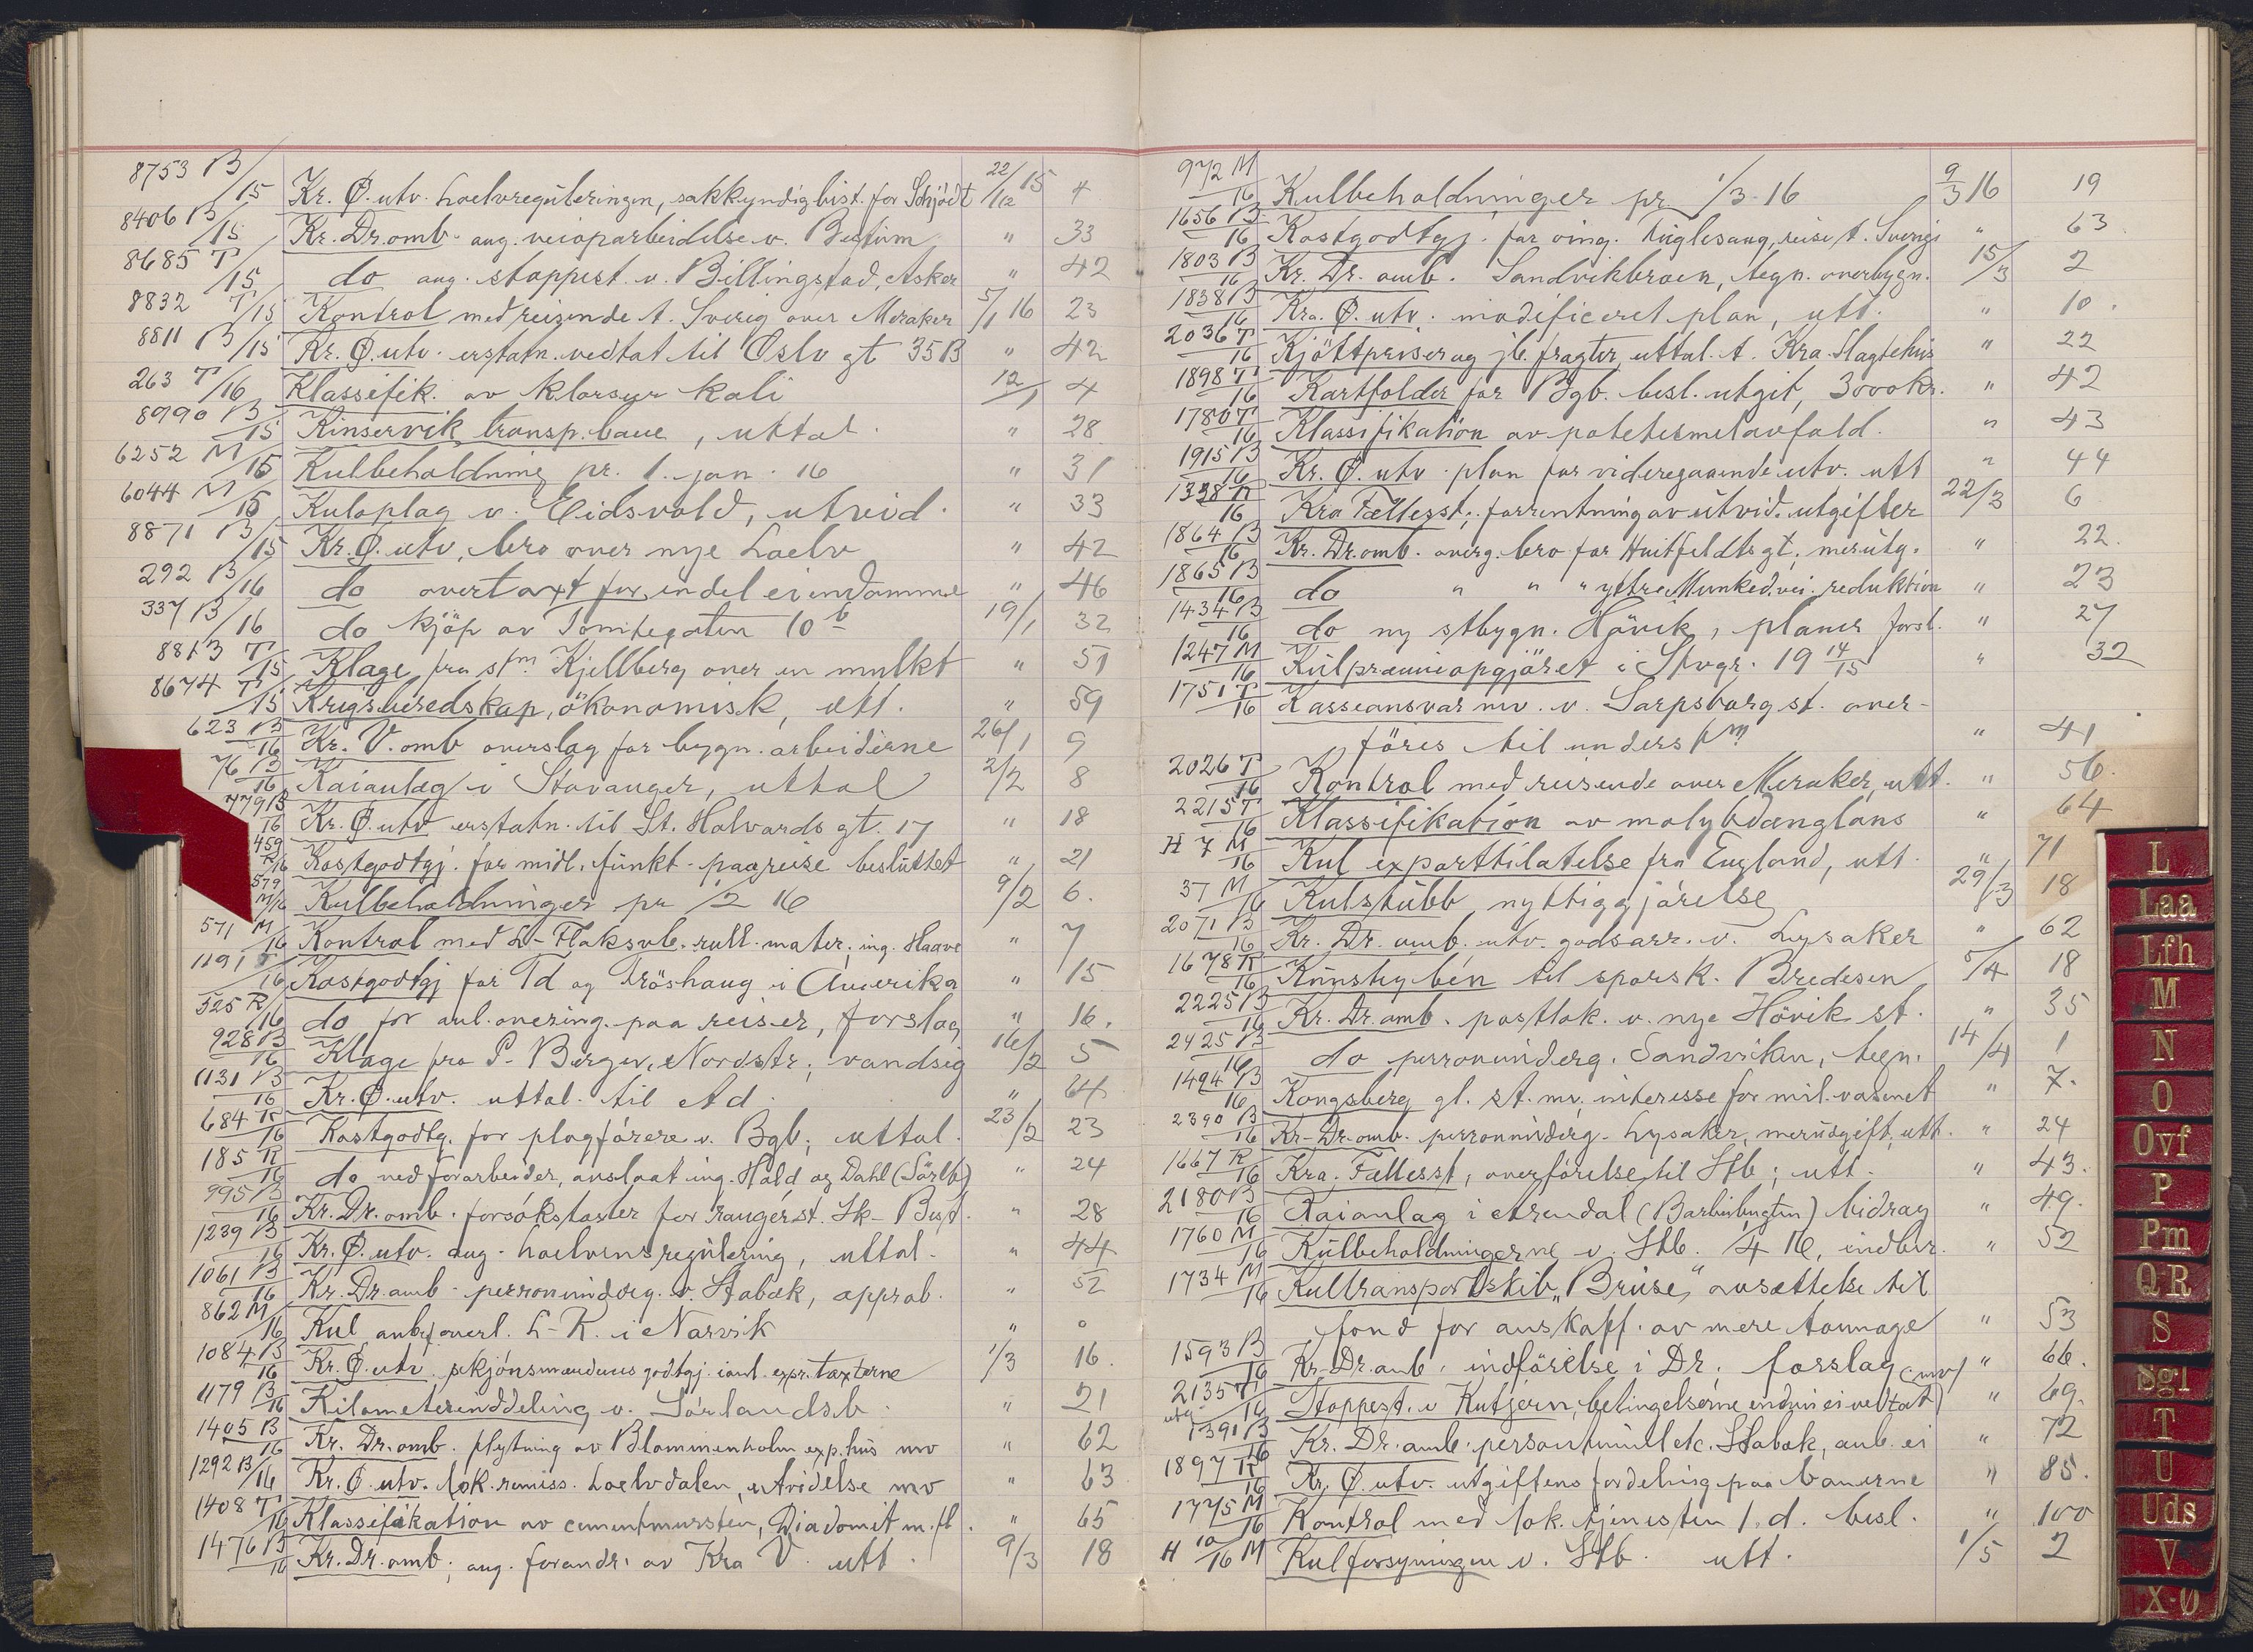 8753 B/15 Kr. Ø. utv. Loelvreguleringen, sakkyndig bist. for Schjödt 22/12 15 4
8406 B/15 Kr. Dr. omb. ang. veioparbeidelse v. Bestum " 33
8685 T/15 do ang. stoppest. v. Billingstad, Asker " 42
8832 T/15 Kontrol med reisende t. Sverig over Meraker 5/1 16 23
8811 B/15 Kr. Ø. utv. erstatn. vedtat til Oslo gt 35 B " 42
263 T/16 Klassifik. av klorsur kali 12/1 4
8990 B/15 Kinservik transp. bane, uttal. " 28
6252 M/15 Kulbeholdning pr. 1. jan. 16 " 31
6044 M/15 Kuloplag v. Eidsvold, utvid. " 33
8871 B/15 Kr. Ø. utv, bro over nye Loelv " 42
292 B/16 do overtaxt for endel eiendomme " 46
337 B/16 do kjöp av Tomtegaten 10 b 19/1 32
8813 T/15 Klage fra stm Kjellberg over en mulkt " 51
8674 T/15 Krigsberedskap, ökonomisk, utt. " 59
623 B/16 Kr. V. omb overslag for bygn. arbeiderne 26/1 9
76 B/16 Kaianlæg i Stavanger, uttal 2/2 8
779 B/16 Kr. Ø. utv erstatn. til St. Halvards gt. 17 " 18
459 R/16 Kostgodtgj. for midl. funkt. paa reise besluttet " 21
579 M/16 Kulbeholdninger pr 1/2 16 9/2 6.
571 M/16 Kontrol med L-Flaksvb. rull. mater, ing. Haave " 7
1191 T/16 Kostgodtgj for Td og Fröshaug i Amerika " 15
525 R/16 do for anl. overing. paa reiser, forslag " 16.
928 B/16 Klage fra P. Berger, Nordstr; vandsig 16/2 5
1131 B/16 Kr. Ø. utv. uttal. til Ad. " 64
684 R/16 Kostgodtg. for plogförere v. Bgb; uttal. 23/2 23
185 R/16 do ved forarbeider, avslaat ing. Hald og Dahl (Sörlb) " 24
995 B/16 Kr. Dr. omb. forsökstaster for rangerst. Sk-Best. " 28
1239 B/16 Kr. Ø. utv. ang. Loelvens regulering, uttal. " 44
1061 B/16 Kr. Dr. omb. perronunderg. v. Stabæk, approb. " 52
862 M/16 Kul overl. L-K. i Narvik " 0
1084 B/16 Kr. Ø. utv. skjönsmændenes godtgj. i anl. expr. taxterne 1/3 16.
1179 B/16 Kilometerinddeling v. Sörlandsb. " 21
1405 B/16 Kr. Dr. omb. flytning av Blommenholm exp. hus mv " 62
1292 B/16 Kr. Ø. utv. lok. remiss. Loelvdalen, utvidelse mv " 63
1408 T/16 Klassifikation av cementmursten, Diadomit m. fl. " 65
1476 B/16 Kr. Dr. omb; ang. forandr. av Kra V. utt. 9/3 18
972 M/16 Kulbeholdninger pr. 1/3. 16 9/3 16 19
1656 B/16 Kostgodtgj. for oving. Inglesaug, reise t. Sverige " 63
1803 B/16 Kr. Dr. omb. Sandvikbroen, tegn. overbygn. 15/3 2
1838 B/16 Kra. Ø. utv. modificeret plan, utt. " 10.
2036 T/16 Kjöttpriser og jb. fragter, uttal. t. Kra. Slagtehus " 22
1898 T/16 Kartfolder for Bgb. besl. utgit, 3000 kr. " 42
1780 T/16 Klassifikation av potetesmelavfald. " 43
1915 B/16 Kr. Ø. utv. plan for videregaaende utv. utt " 44
1338 R/16 Kra Fællesst; forrentning av utvid. utgifter 22/3 6
1864 B/16 Kr. Dr. omb. overg. bro for Huitfeldts gt. merutg. " 22.
1865 B/16 do " " " ytre Munkedvei. reduktion " 23
1434 B/16 do ny stbygn. Hövik, planer forsl. " 27
1247 M/16 Kulpræmieopgjöret i Stvgr. 19 14/15 " 32
1751 T/16 Kasseansvar mv. v. Sarpsborg st. over-
föres til unders fm " 41
2026 T/16 Kontrol med reisende over Meraker, utt. " 56.
2215 T/16 Klassifikation av molybdænglans " 64
H 7 M/16 Kul exporttilatelse fra England, utt. " 71
37 M/16 Kulstubb nyttiggjörelse 29/3 18
2071 B/16 Kr. Dr. omb. utv. godsarr. v. Lysaker " 62
1678 R/16 Kunstig ben til sporsk. Bredesen 5/4 18
2225 B/16 Kr. Dr. omb. postlok. v. nye Hövik st. " 35
2425 B/16 do perronunderg. Sandviken, tegn. 14/4 1
1494 B/16 Kongsberg gl. st. mv. interesse for mil. væsenet " 7.
2390 B/16 Kr. Dr. omb. perronunderg. Lysaker, merudgift, utt. " 24
1667 R/16 Kra. Fællesst, overförelse til Stb; utt. " 43.
2180 B/16 Kaianlæg i Arendal (Barbubugten) bidrag " 49.
1760 M/16 Kulbeholdningerne v. Stb. 1/4 16, indber. " 52
1734 M/16 Kultransportskib "Bruse," avsættelse til
fond for anskaff. av mere tonnage " 53
1593 B/16 Kr. Dr. omb. indförelse i Dr. forslag (mv) " 66.
2135 T/16 Stoppest. v Kutjern, betingelserne endnu ei vedtat " 69.
utg. 1391 B/16 Kr. Dr. omb. persontunnel etc. Stabæk, anb. ei " 72
1897 R/16 Kr. Ø. utv. utgiftens fordeling paa banerne " 85.
1775 M/16 Kontrol med lok. tjenesten 1. d. besl. " 100
H 10/16 M Kulforsyningen v. Stb. utt. 1/5 2
L
Laa
Lfh
M
N
O
Ovf
P
Pm
QR
S
Sgl
T
U
Uds
V
X-Ø